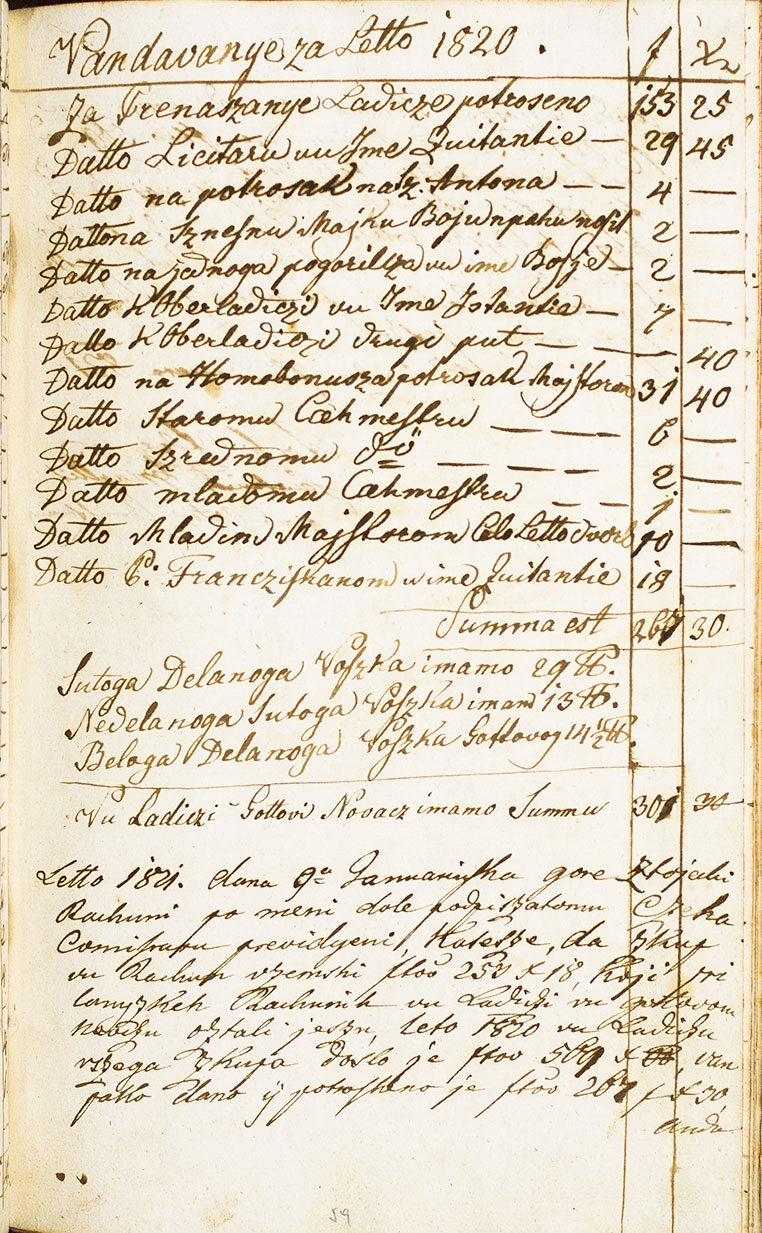 Vandavanye za Letto 1820. f Xr
Za Prenaszanye Ladicze potroseno 153 25
Datto Licitaru vu Ime Quitantie — 29 45
Datto na potrosak na Sz. Antona — — 4 —
Datto na Sznesnu Majku Boju 2 —
Datto na jednoga pogorilcza vu ime Bosje — 2 —
Datto k Oberladiczi vu Ime Istantia — 7 —
Datto k Oberladiczi drugi put — — — 40
Datto na Homobonusza potrosak Majstorom 31 40
Datto Staromu Cehmestru — — — 6 —
Datto Szrednomu dō — — — — 2 —
Datto mladomu Cehmestru — — 1 —
Datto Mladim Majstorom Celo Letto dvorb 10 —
Datto P: Francziskanom u ime Quitantie 18 —
Summa est 267 30.
Sutoga Delanoga Voszka imamo 29 ℔.
Nedelanoga Sutoga Voszka imam 13 ℔.
Beloga Delanoga Voszka Gottovog 14 1/2 ℔.
Vu Ladiczi Gottovi Novacz imamo Summu 301 30
Letto 1821. dana 9a Januariuska gore Ztojechi
Rachuni po meni dole podpiszatomu Czeha
Comissaru previdyeni, Katesze, da Zkup
vu Rachun vzemski stvo 253 f 18, koji pri
lanyzkeh Rachunih vu Ladiczi vu gottovom
novczu oztali jeszu, leto 1820 vu Ladiczu
vszega Zkupa doslo je ftov 569 f, van
pako dano ÿ potrosheno je ftov 267 f x 30,
anda
59